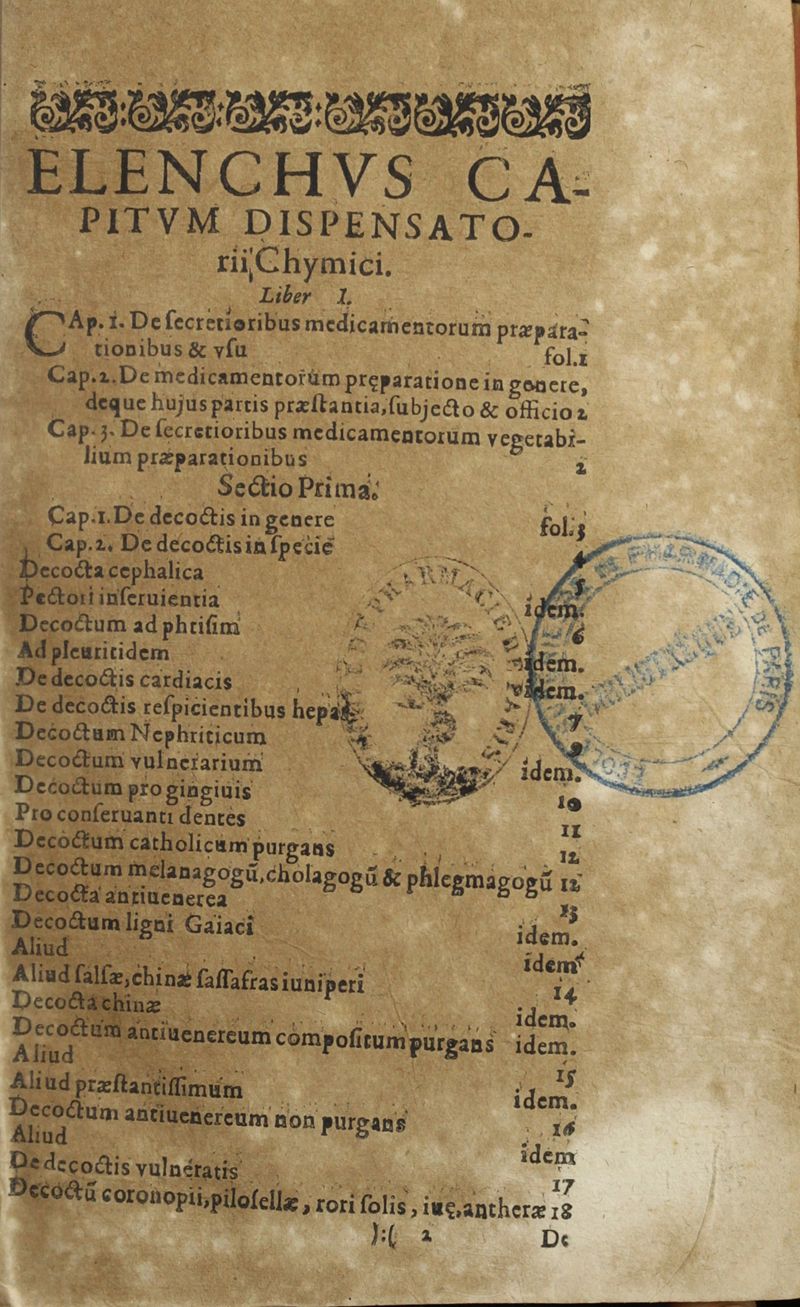 ELENCHVS CA-
PITVM DISPENSATO-
rii Chymici.
Liber I.
CAp. 1. De secretioribus medicamentorum præpara-
tionibus & vsu fol.1
Cap.2. De medicamentorum pręparatione in genere,
deque hujus partis præstantia, subjecto & officio 2
Cap. 3. De secretioribus medicamentorum vegetabi-
lium præparationibus 2
Sectio Prima.
Cap.1. De decoctis in genere fol.3
Cap.2. De decoctis in specie
Decocta cephalica 5
Pectori inseruientia idem.
Decoctum ad phtisim 6
Ad pleuritidem idem.
De decoctis cardiacis idem.
De decoctis respicientibus hepar 7
Decoctum Nephriticum
Decoctum vulnerarium idem.
Decoctum pro gingiuis 10
Pro conseruanti dentes 11
Decoctum catholicum purgans 12
Decoctum melanagogũ, cholagogũ & phlegmagogũ 12
Decocta antiuenerea 13
Decoctum ligni Gaiaci idem.
Aliud idem
Aliud salsæ, chinæ sassafras iuniperi 14
Decocta chinæ idem.
Decoctum antiuenereum compositum purgans idem.
Aliud 15
Aliud præstantissimum idem.
Decoctum antiuenereum non purgans 16
Aliud idem
De decoctis vulneratis 17
Decoctũ coronopii, pilosellæ, rori solis, iuę, antheræ 18
):( 2 De
PHARMACIE DE PARIS